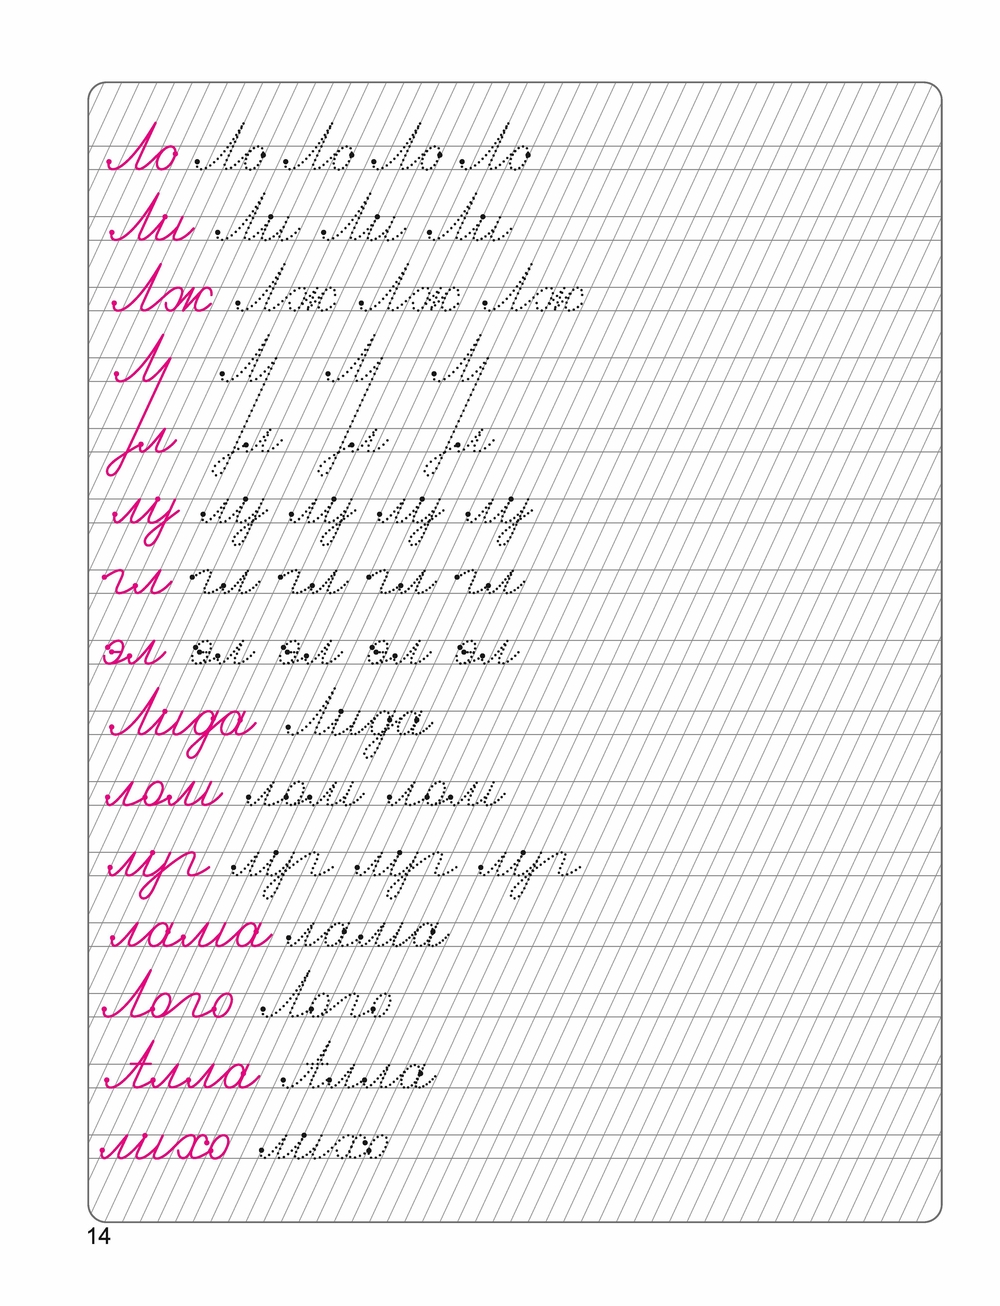 Ло Ло Ло Ло Ло
Ли Ли Ли Ли
Лж Лж Лж Лж
Лу Лу Лу Лу
л л л л
лу лу лу лу лу
гл гл гл гл гл
эл эл эл эл эл
Лида Лида
лом лом лом
луг луг луг луг
лама лама
Лого Лого
Алла Алла
лихо лихо
14